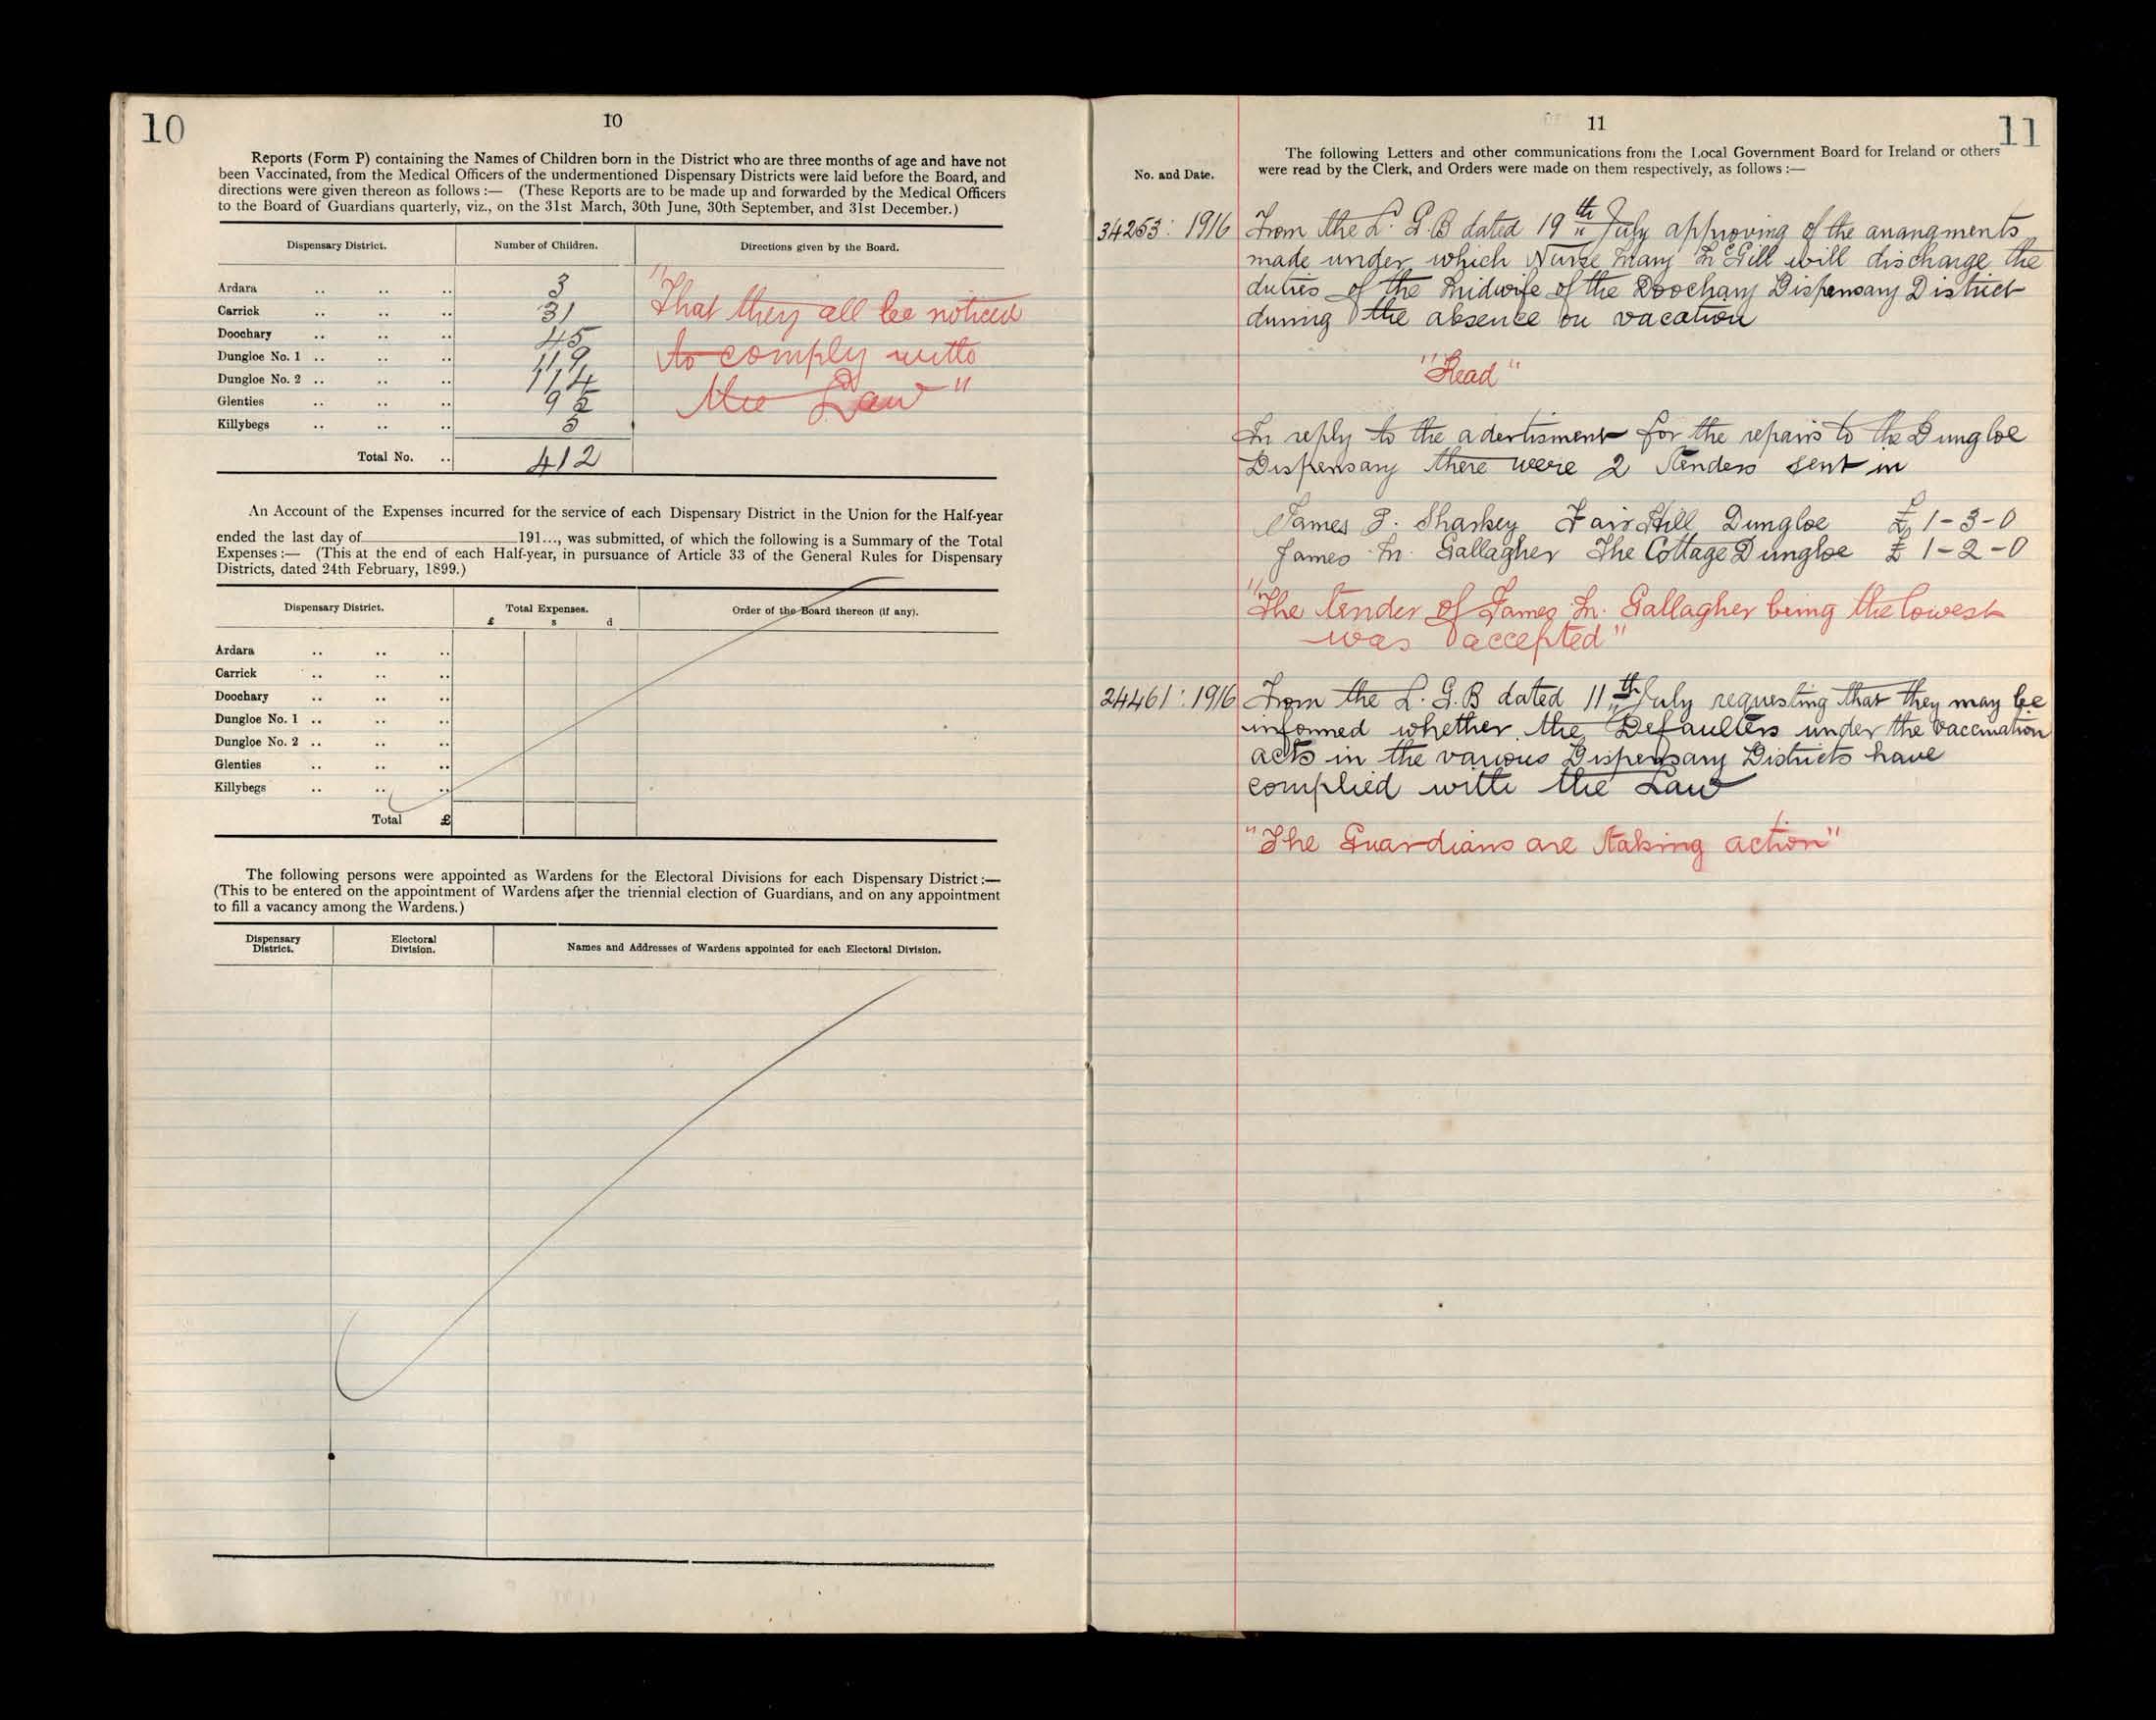 10
10
Reports (Form P) containing the Names of Children born in the District who are three months of age and have not
been Vaccinated, from the Medical Officers of the undermentioned Dispensary Districts were laid before the Board, and
directions were given thereon as follows :— (These Reports are to be made up and forwarded by the Medical Officers
to the Board of Guardians quarterly, viz., on the 31st March, 30th June, 30th September, and 31st December.)
Dispensary District. Number of Children. Directions given by the Board.
Ardara .. .. .. 3
Carrick .. .. .. 31
Doochary .. .. .. 45
Dungloe No. 1 .. .. .. 119
Dungloe No. 2 .. .. .. 114
Glenties .. .. .. 95
Killybegs .. .. .. 5
Total No. .. 412
"That they all be noticed
to comply with
the Law"
An Account of the Expenses incurred for the service of each Dispensary District in the Union for the Half-year
ended the last day of 191..., was submitted, of which the following is a Summary of the Total
Expenses :— (This at the end of each Half-year, in pursuance of Article 33 of the General Rules for Dispensary
Districts, dated 24th February, 1899.)
Dispensary District. Total Expenses. Order of the Board thereon (if any).
£ s d
Ardara .. .. ..
Carrick .. .. ..
Doochary .. .. ..
Dungloe No. 1 .. .. ..
Dungloe No. 2 .. .. ..
Glenties .. .. ..
Killybegs .. .. ..
Total £
The following persons were appointed as Wardens for the Electoral Divisions for each Dispensary District :—
(This to be entered on the appointment of Wardens after the triennial election of Guardians, and on any appointment
to fill a vacancy among the Wardens.)
Dispensary District. Electoral Division. Names and Addresses of Wardens appointed for each Electoral Division.
11
11
No. and Date.
The following Letters and other communications from the Local Government Board for Ireland or others
were read by the Clerk, and Orders were made on them respectively, as follows :—
34253 : 1916 From the L. G. B dated 19th July approving of the anangments
made under which Nurse Mary McGill will discharge the
duties of the Midwife of the Doochary Dispensary District
during the absence on vacation
"Read"
In reply to the adertisment for the repairs to the Dungloe
Dispensary there were 2 Tenders sent in
James J. Sharkey Fair Hill Dungloe £ 1-3-0
James M. Gallagher The Cottage Dungloe £ 1-2-0
"The tender of James M. Gallagher being the lowest
was accepted"
24461 : 1916 From the L. G. B dated 11th July requesting that they may be
informed whether the Defaulters under the Vaccination
acts in the various Dispensary Districts have
complied with the Law
"The Guardians are taking action"